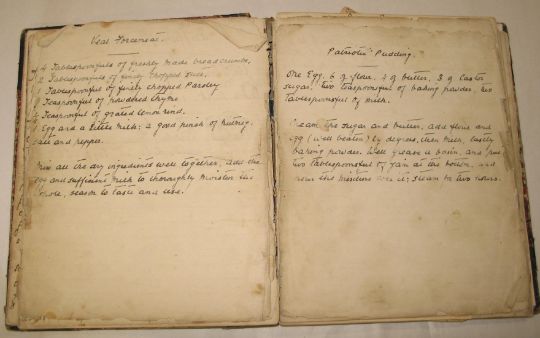 Veal Forcemeat.
4 Tablespoonfuls of freshly made breadcrumbs,
2 Tablespoonfuls of finely chopped suet,
1 Tablespoonful of finely chopped Parsley
Teaspoonful of powdered thyme
Teaspoonful of grated lemon rind.
1 Egg and a little milk: a good pinch of nutmeg.
Salt and pepper.
Mix all the dry ingredients well together, add the
egg and sufficient milk to thoroughly moisten the
whole, season to taste and use.
Patriotic Pudding.
One Egg, 6 oz flour, 4 oz butter, 3 oz castor
sugar, two teaspoonsful of baking powder, two
tablespoonsful of milk.
Cream the sugar and butter, add flour and
egg (well beaten) by degrees, then milk, lastly
baking powder. Well grease a basin, and put
two tablespoonsful of jam at the bottom, and
pour the mixture over it; steam for two hours.